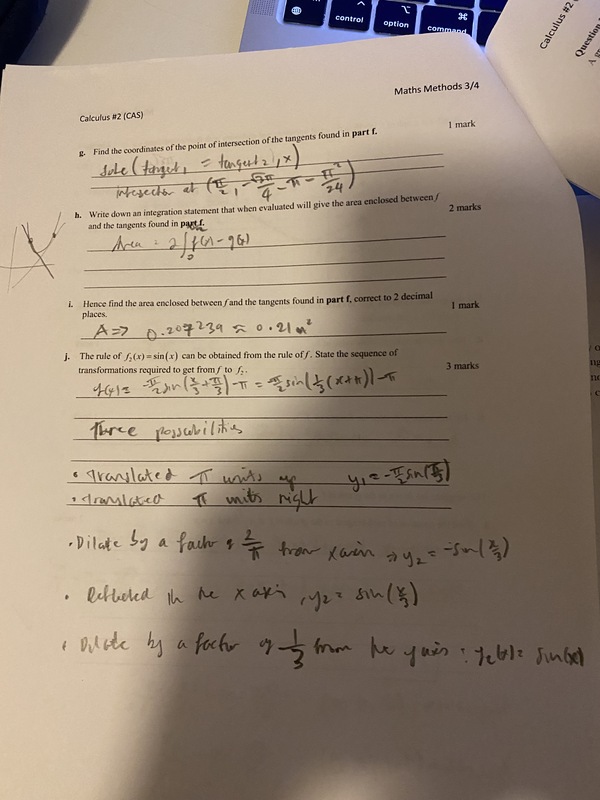 control
option
command
⌘
Calculus #2
Question
Maths Methods 3/4
Calculus #2 (CAS)
g. Find the coordinates of the point of intersection of the tangents found in part f.
1 mark
solve (tangent₁ = tangent₂, x)
intersection at (π/2, -√3π/4 - π - π²/24)
h. Write down an integration statement that when evaluated will give the area enclosed between f
and the tangents found in part f.
2 marks
Area = 2∫ f(x) - g(x)
i. Hence find the area enclosed between f and the tangents found in part f, correct to 2 decimal
places.
1 mark
A => 0.207239 ≈ 0.21 m²
j. The rule of f₂(x) = sin(x) can be obtained from the rule of f. State the sequence of
transformations required to get from f to f₂.
3 marks
f(x) = -π/2 sin(x/3 + π/3) - π = -π/2 sin(1/3(x+π)) - π
Three possabilities
• Translated π units up y₁ = -π/2 sin(x/3)
• Translated π units right
• Dilate by a factor of 2/π from x axis => y₂ = -sin(x/3)
• Reflected in the x axis, y₂ = sin(x/3)
• Dilate by a factor of 1/3 from the y axis : y₂(x) = sin(x)